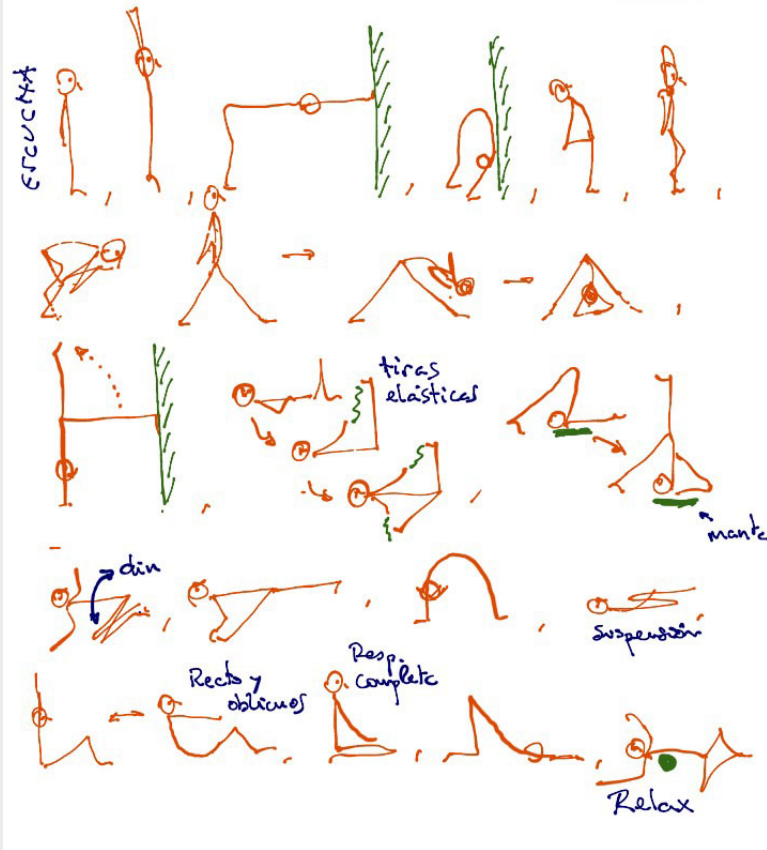 ESCUCHA
tiras
elásticas
manta
din
suspensión
Recto y
oblicuos
Resp.
completa
Relax